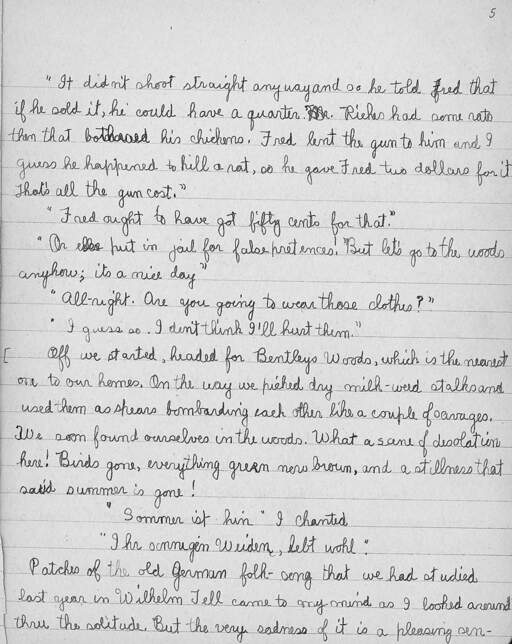 5
"It didn't shoot straight anyway and so he told Fred that
if he sold it, he could have a quarter. Mr. Riches had some rats
then that bothered his chickens. Fred lent the gun to him and I
guess he happened to kill a rat, so he gave Fred two dollars for it
That's all the gun cost."
"Fred ought to have got fifty cents for that."
"Or else put in jail for false pretences! But let's go to the woods
anyhow; its a nice day"
"All-right. Are you going to wear those clothes?"
"I guess so. I don't think I'll hurt them."
[ Off we started, headed for Bentleys Woods, which is the nearest
one to our homes. On the way we picked dry milk-weed stalks and
used them as spears bombarding each other like a couple of savages.
We soon found ourselves in the woods. What a scene of desolation
here! Birds gone, everything green now brown, and a stillness that
said summer is gone!
"Sommer ist hin" I chanted
"Ihr sonnigen Weiden, lebt wohl".
Patches of the old German folk-song that we had studied
last year in Wilhelm Tell came to my mind as I looked around
thru the solitude. But the very sadness of it is a pleasing sen-